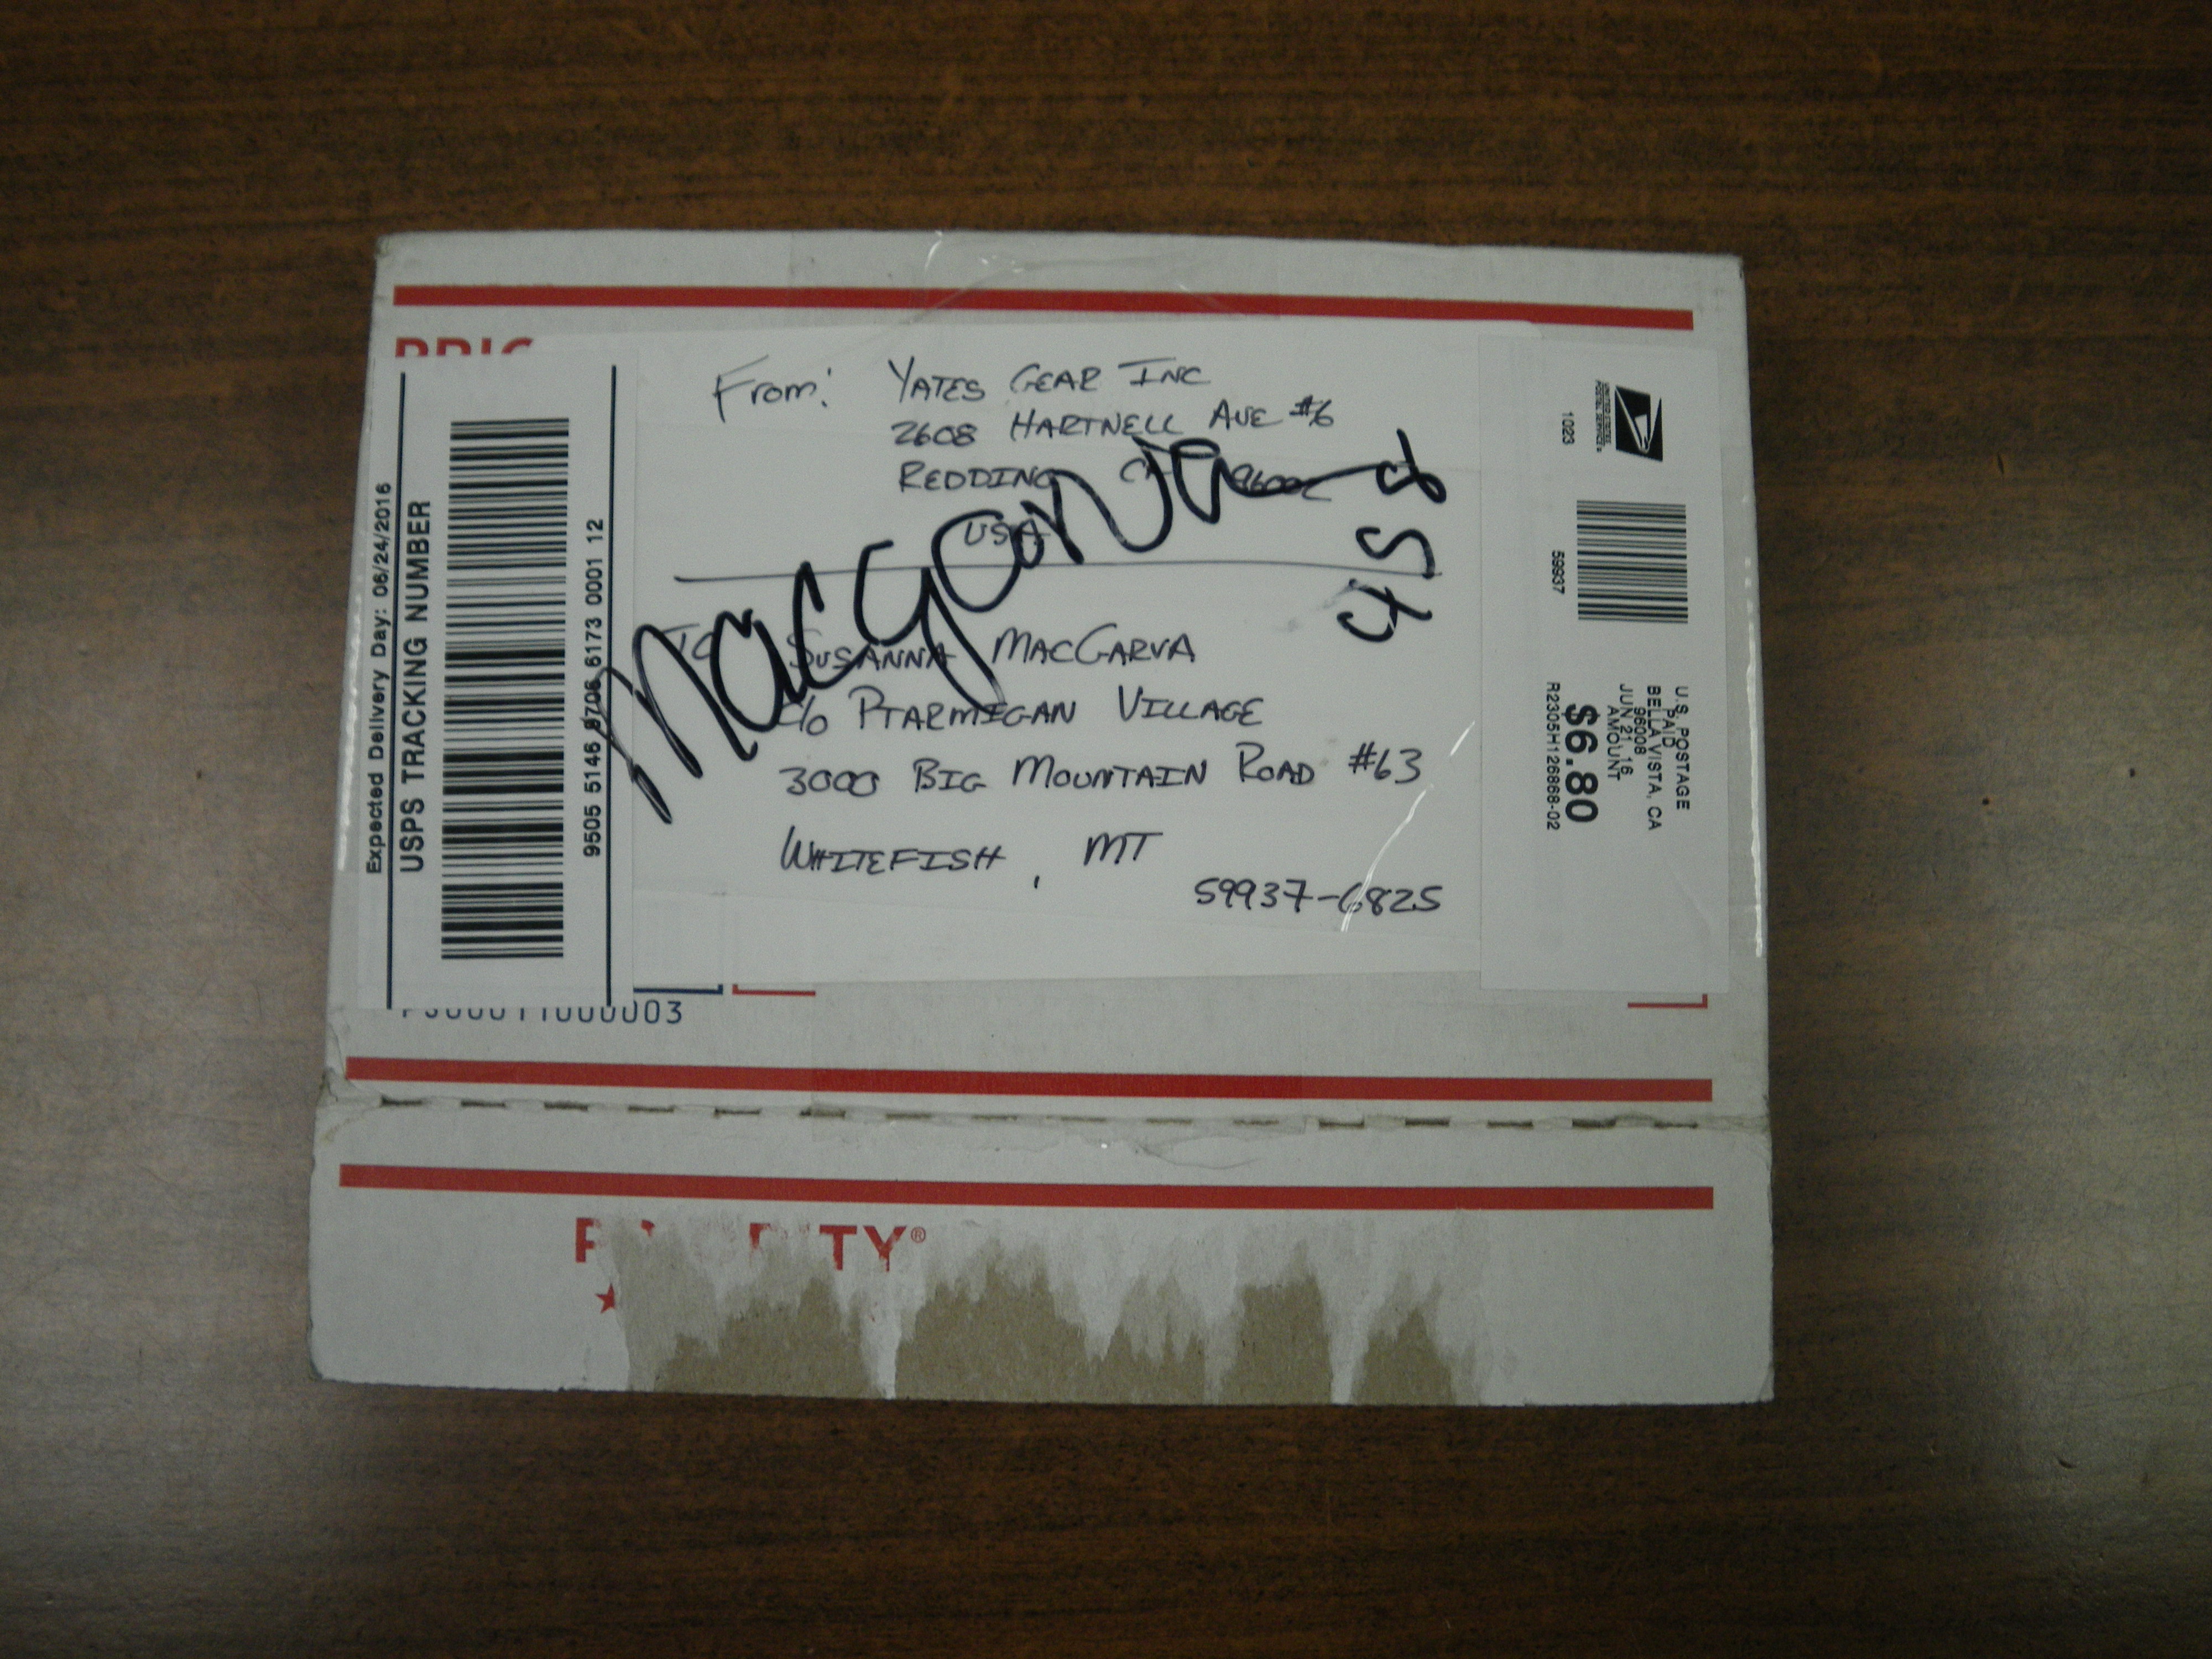 From: YATES GEAR INC
2608 HARTNELL AVE #6
REDDING CA 96002
USA
Macgarva
458
TO SUSANNA MACGARVA
C/O PTARMIGAN VILLAGE
3000 BIG MOUNTAIN ROAD #63
WHITEFISH, MT
59937-6825
Expected Delivery Day: 06/24/2016
USPS TRACKING NUMBER
9505 5146 9706 6173 0001 12
UNITED STATES
POSTAL SERVICE®
1023
59937
U.S. POSTAGE
PAID
BELLA VISTA, CA
96008
JUN 21, 16
AMOUNT
$6.80
R2305H126868-02
PRIORITY®